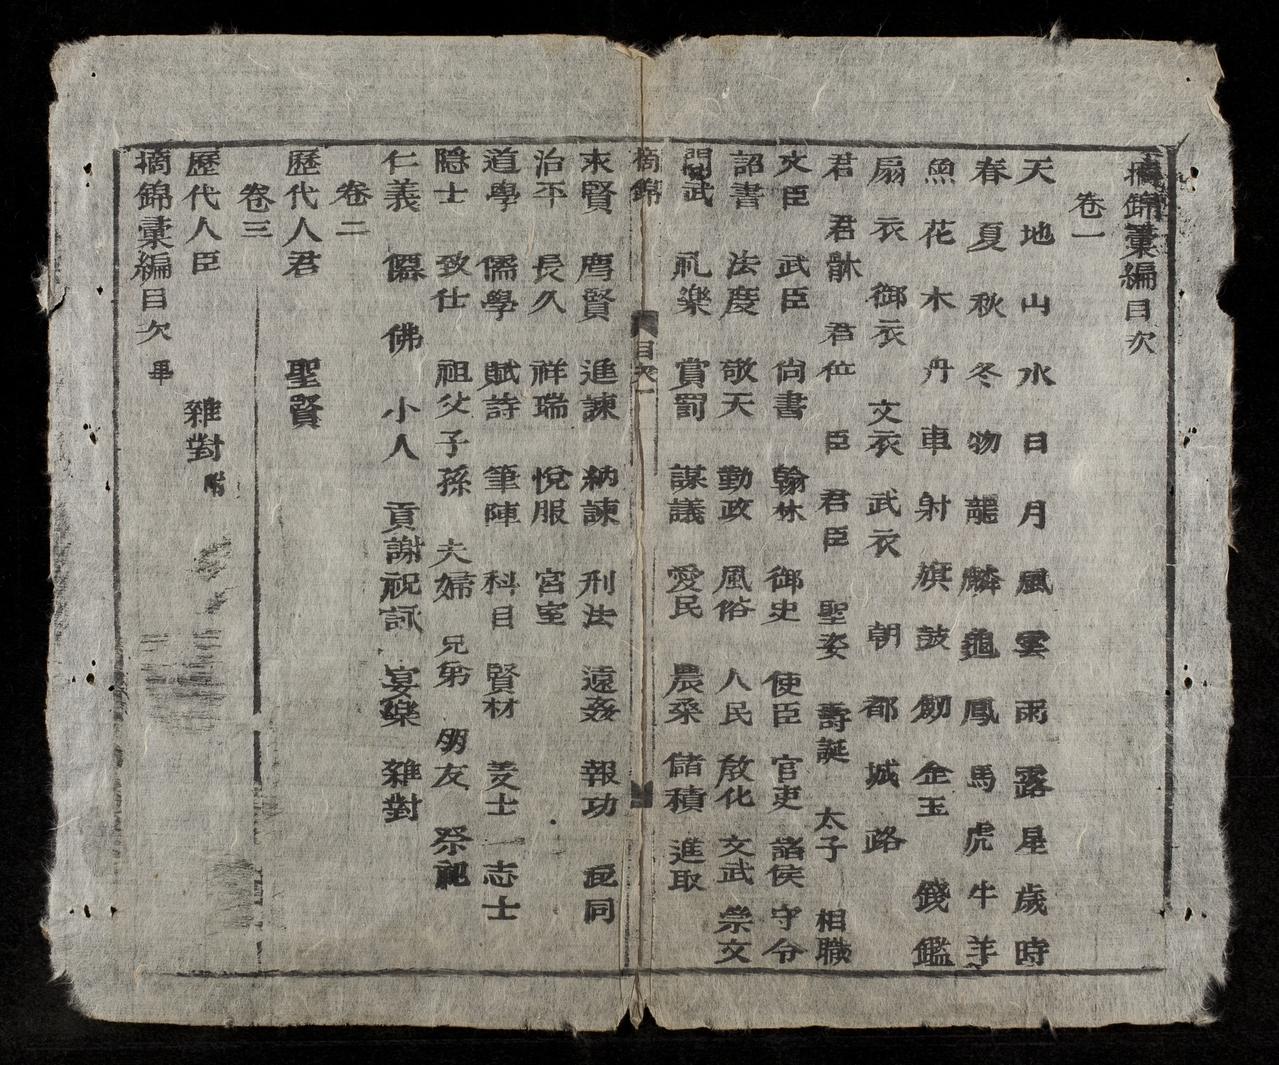 摛錦彙編目次
卷一
天 地 山 水 日 月 風 雲 雨 露 星 歲 時
春 夏 秋 冬 物 龍 麟 龜 鳳 馬 虎 牛 羊
魚 花 木 丹 車 射 旗 鼓 劒 金玉 錢 鑑
扇 衣 御衣 文衣 武衣 朝 都 城 路
君 君躰 君位 臣 君臣 聖姿 壽誕 太子 相職
文臣 武臣 尙書 翰林 御史 使臣 官吏 諸侯 守令
詔書 法度 敬天 勤政 風俗 人民 敎化 文武 崇文
武 礼樂 賞罰 謀議 愛民 農桑 儲積 進取
摛錦 目次一
求賢 鹰賢 進諫 納諫 刑法 遠姦 報功 同
治平 長久 祥瑞 悅服 宮室
道學 儒學 賦詩 筆陣 科目 賢材 士 志士
隱士 致仕 祖父子孫 夫婦 兄弟 朋友 祭祀
仁義 僊 佛 小人 貢謝祝詠 宴樂 雜對
卷二
歷代人君 聖賢
卷三
歷代人臣 雜對 附
摛錦彙編目次 畢